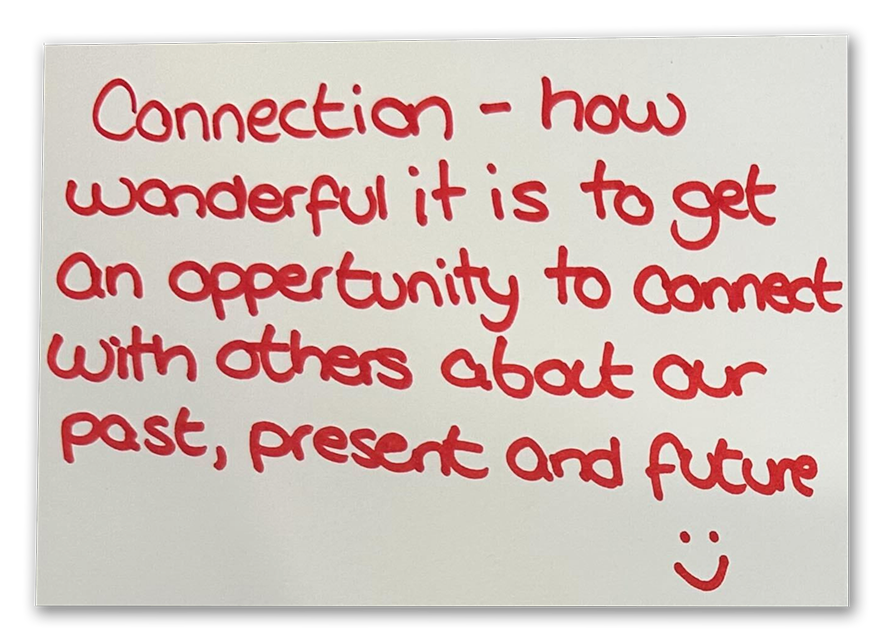 Connection - how
wonderful it is to get
an oppertunity to connect
with others about our
past, present and future